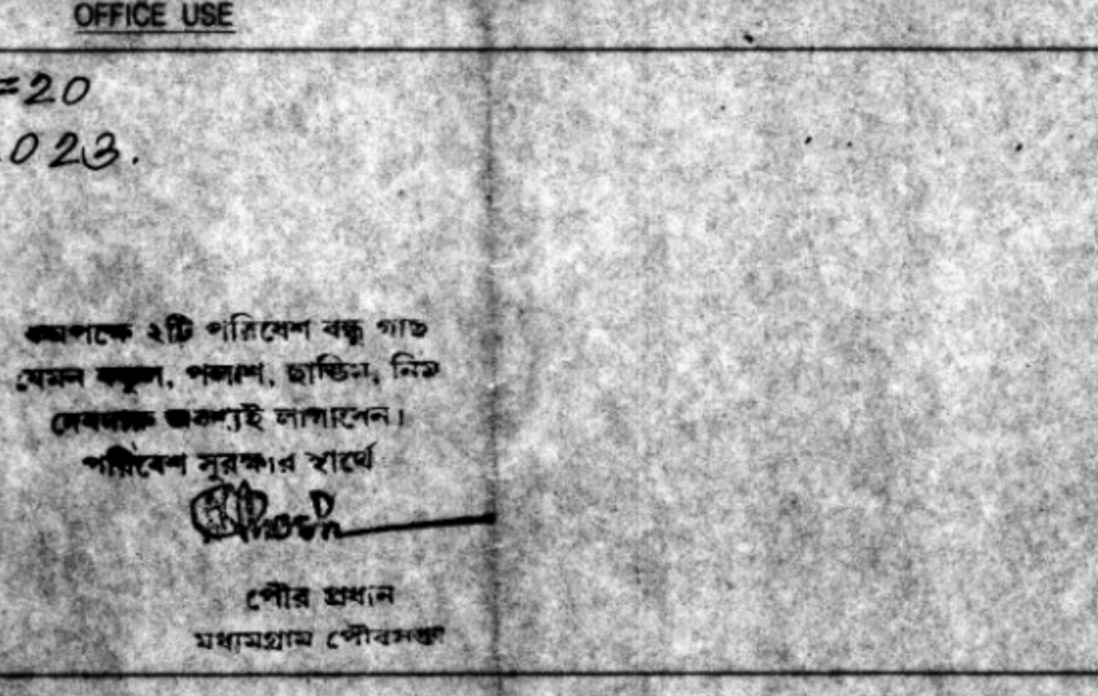 OFFICE USE
=20
023.
কমপক্ষে ২টি পরিবেশ বন্ধু গাছ
যেমন বকুল, পলাশ, ছাতিম, নিম
দেবদারু অবশ্যই লাগাবেন।
পরিবেশ সুরক্ষার স্বার্থে
পৌর প্রধান
মধ্যমগ্রাম পৌরসভা